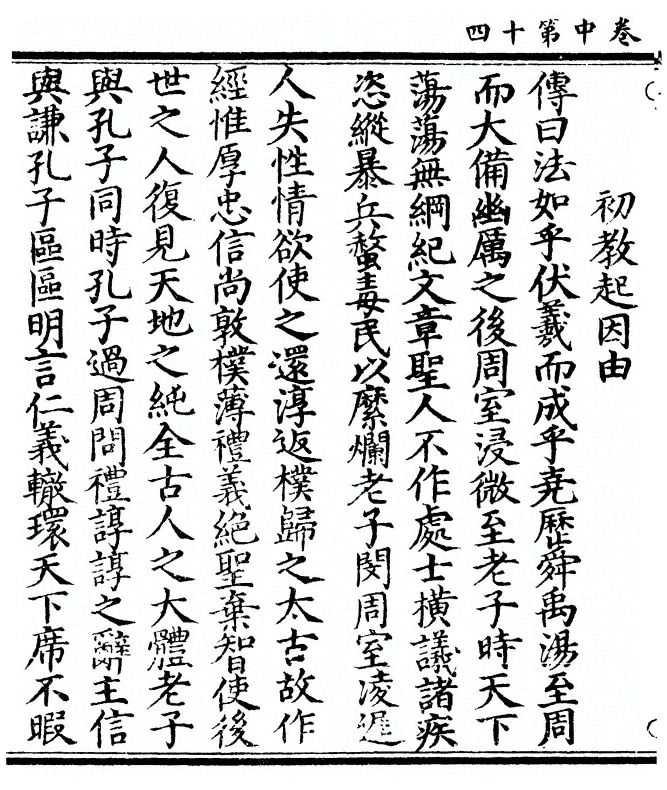 卷中第十四
初教起因由
傳曰法如乎伏羲而成乎堯歷舜禹湯至周
而大備幽厲之後周室浸微至老子時天下
蕩蕩無綱紀文章聖人不作處士橫議諸疾
恣縱暴兵螫毒民以縻爛老子閔周室凌遲
人失性情欲使之還淳返樸歸之太古故作
經惟厚忠信尚敦樸薄禮義絕聖棄智使後
世之人復見天地之純全古人之大體老子
與孔子同時孔子過周問禮諄諄之辭主信
與謙孔子區區明言仁義轍環天下席不暇